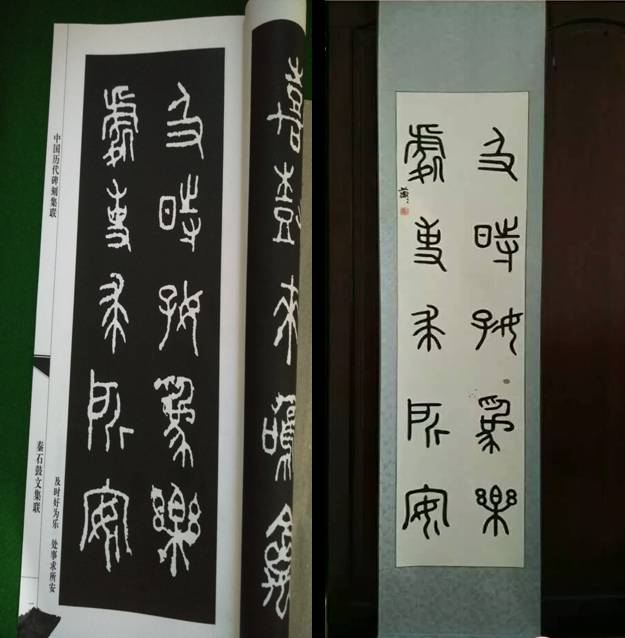 及時好為樂
處事求所安
中国历代碑刻集联
秦石鼓文集联
及时好为乐 处事求所安
及時好為樂
處事求所安